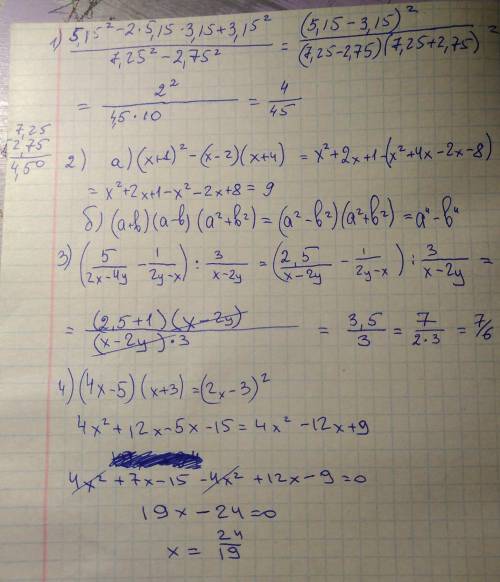 1) (5,15² - 2·5,15·3,15 + 3,15²)/(7,25² - 2,75²) = (5,15 - 3,15)²/((7,25 - 2,75)(7,25 + 2,75)) =
= 2²/(4,5·10) = 4/45
7,25
2,75
4,50
2) а) (x+1)² - (x-2)(x+4) = x² + 2x + 1 - (x² + 4x - 2x - 8)
= x² + 2x + 1 - x² - 2x + 8 = 9
б) (a+b)(a-b)(a²+b²) = (a²-b²)(a²+b²) = a⁴ - b⁴
3) (5/(2x-4y) - 1/(2y-x)) : 3/(x-2y) = (2,5/(x-2y) - 1/(2y-x)) : 3/(x-2y) =
= (2,5+1)(x-2y)/((x-2y)·3) = 3,5/3 = 7/(2·3) = 7/6
4) (4x-5)(x+3) = (2x-3)²
4x² + 12x - 5x - 15 = 4x² - 12x + 9
4x² + 7x - 15 - 4x² + 12x - 9 = 0
19x - 24 = 0
x = 24/19